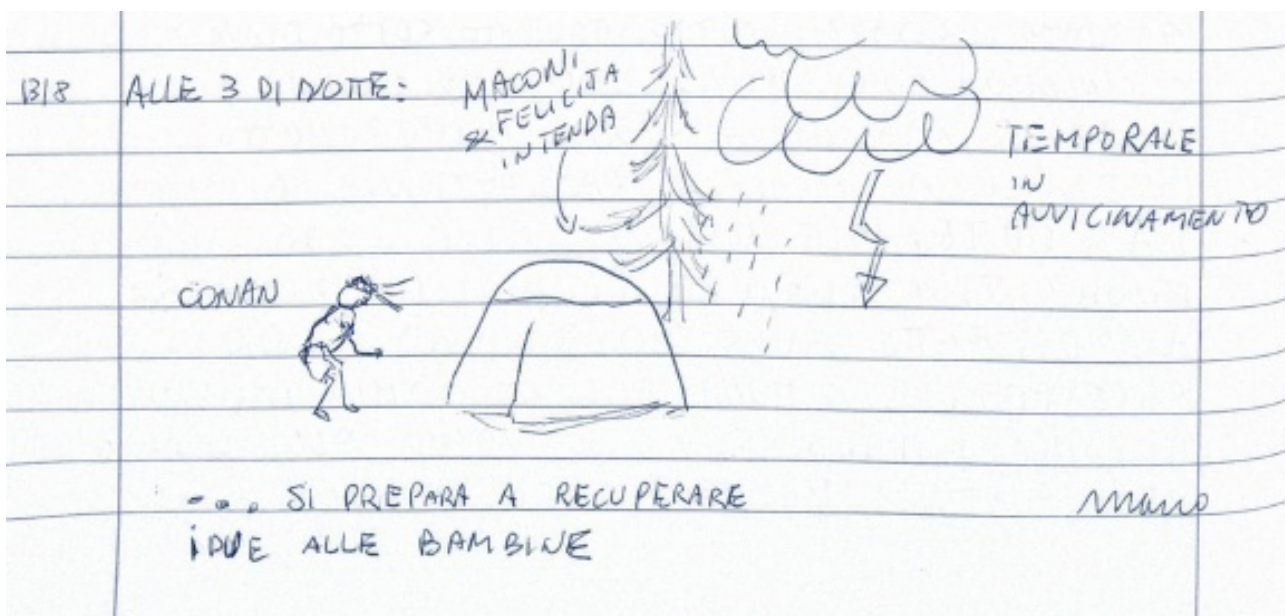 13/8 ALLE 3 DI NOTTE:
MACONI
& FELICITA
IN TENDA
TEMPORALE
IN
AVVICINAMENTO
CONAN
.... SI PREPARA A RECUPERARE
I DUE ALLE BAMBINE